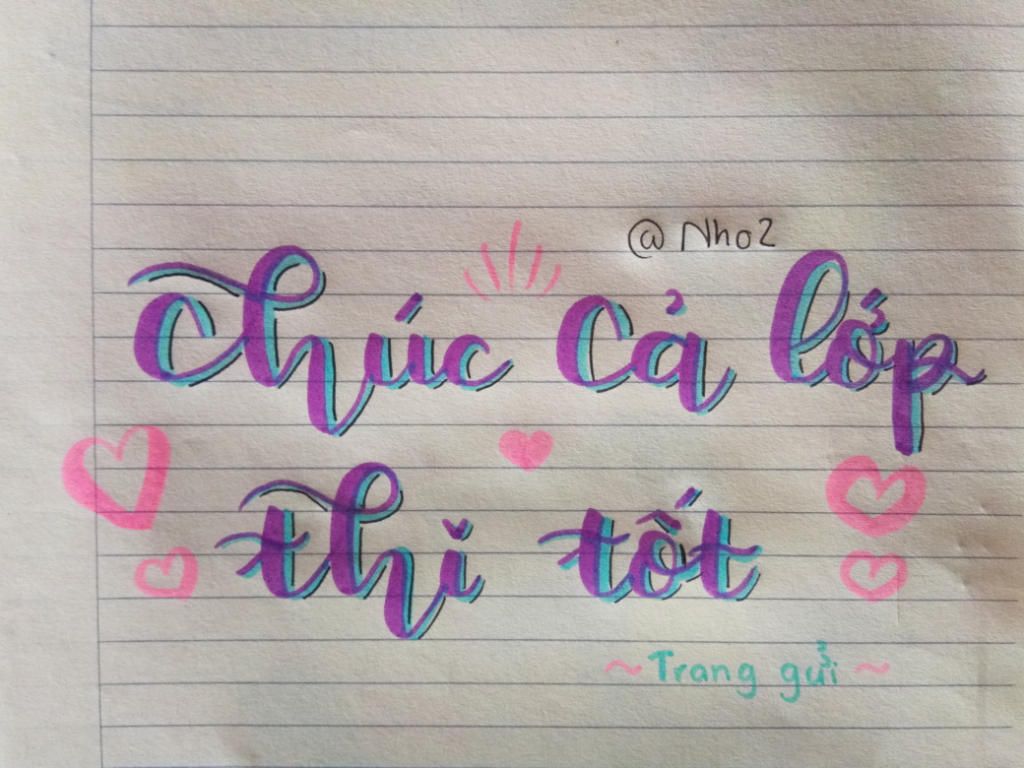 @Nho2
Chúc Cả lớp
thi tốt
~Trang gửi~